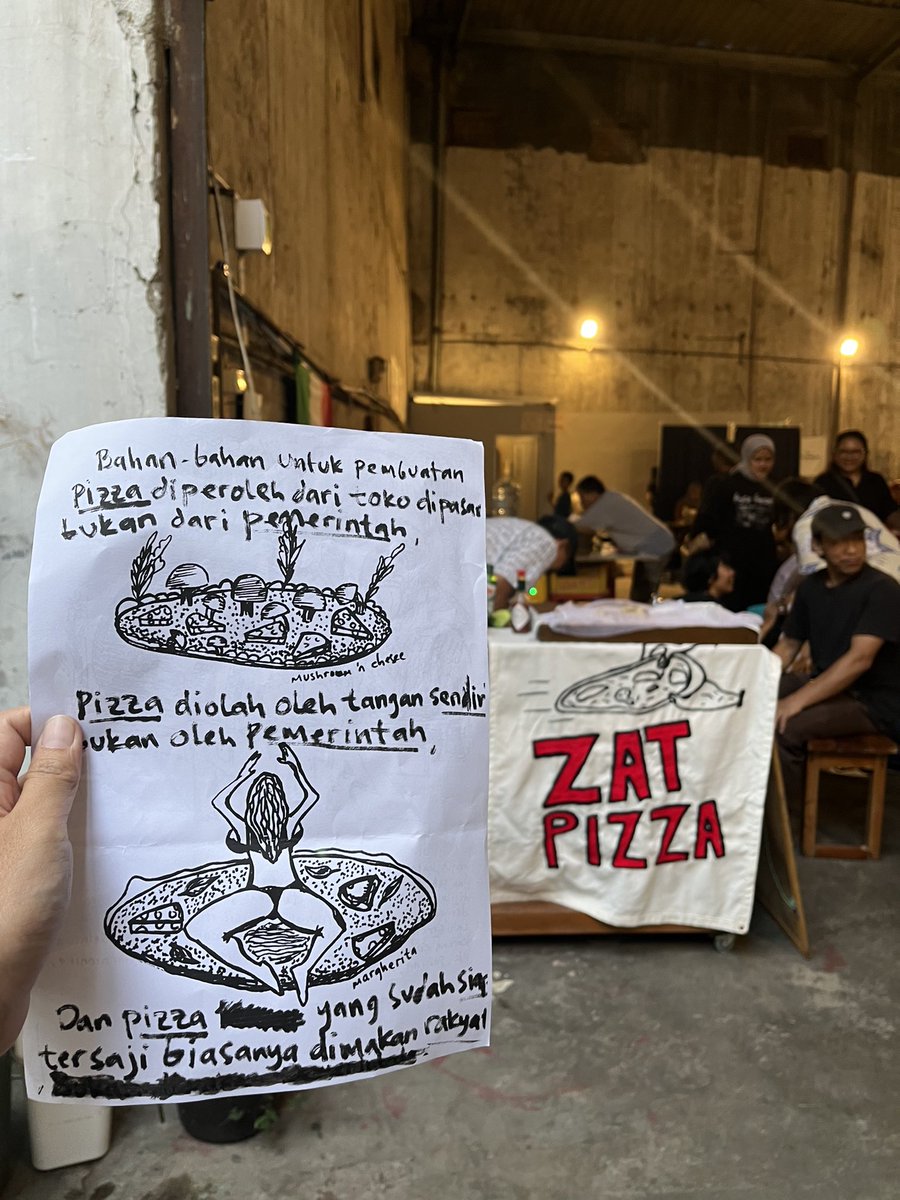 Bahan-bahan untuk pembuatan
Pizza diperoleh dari toko dipasar
bukan dari pemerintah,
Mushroom 'n cheese
Pizza diolah oleh tangan sendiri
bukan oleh pemerintah,
Margherita
Dan pizza yang sudah siap
tersaji biasanya dimakan rakyat
ZAT
PIZZA